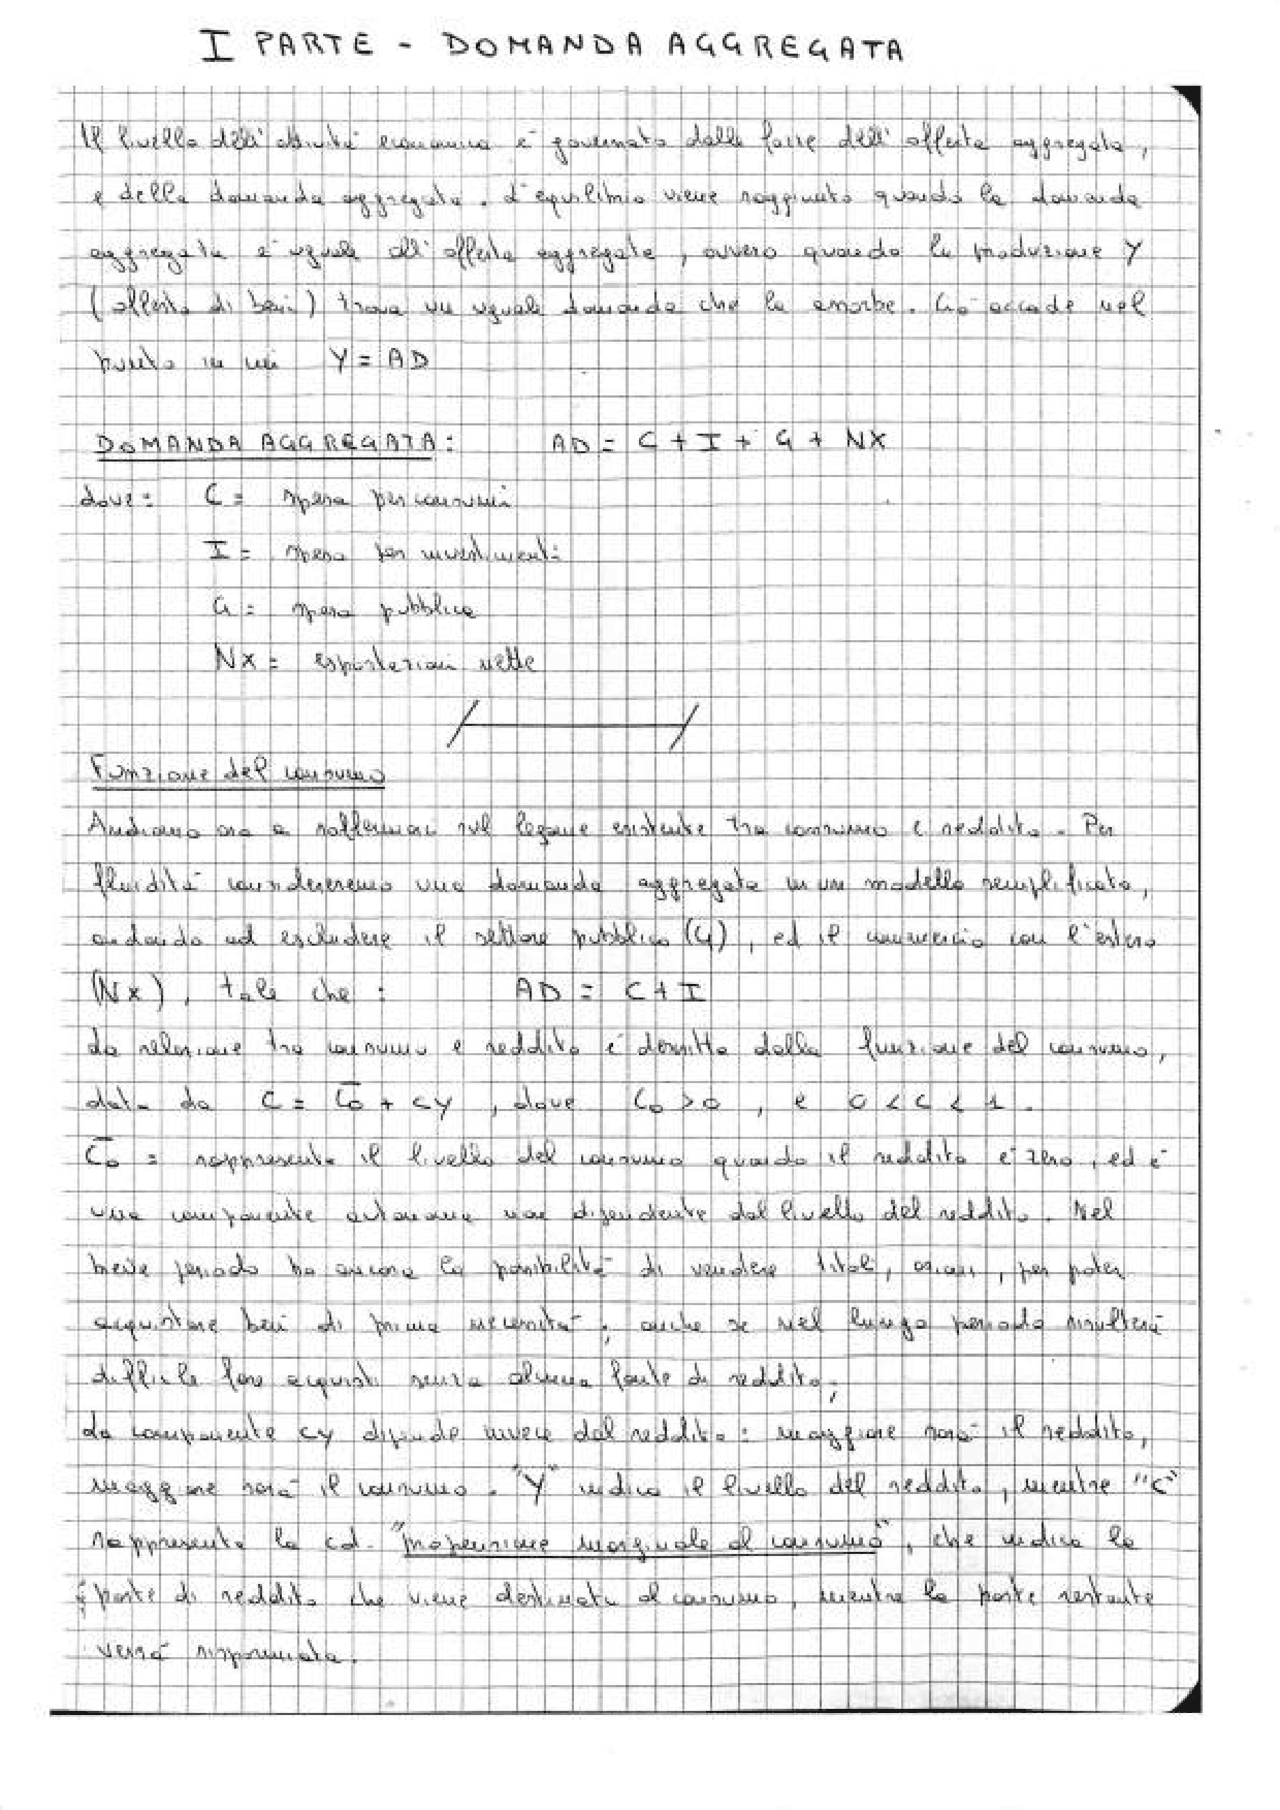 I PARTE - DOMANDA AGGREGATA
Il livello dell'attività economica è governato dalle forze dell'offerta aggregata,
e della domanda aggregata. L'equilibrio viene raggiunto quando la domanda
aggregata è uguale all'offerta aggregata, ovvero quando la produzione Y
(offerta di beni) trova un uguale domanda che la assorbe. Ciò accade nel
punto in cui Y = AD
DOMANDA AGGREGATA: AD = C + I + G + NX
dove: C = spesa per consumi
I = spesa per investimenti
G = spesa pubblica
NX = esportazioni nette
Funzione del consumo
Andiamo ora a soffermarci sul legame esistente tra consumo e reddito. Per
fluidità considereremo una domanda aggregata in un modello semplificato,
andando ad escludere il settore pubblico (G), ed il commercio con l'estero
(NX), tale che: AD = C + I
La relazione tra consumo e reddito è descritta dalla funzione del consumo,
data da C = C̅o + cY, dove Co > 0, e 0 < c < 1.
C̅o = rappresenta il livello del consumo quando il reddito è zero, ed è
una componente autonoma non dipendente dal livello del reddito. Nel
breve periodo ho ancora la possibilità di vendere titoli, azioni, per poter
acquistare beni di prima necessità; anche se nel lungo periodo risulterà
difficile fare acquisti senza alcuna fonte di reddito;
La componente cY dipende invece dal reddito: maggiore sarà il reddito,
maggiore sarà il consumo. "Y" indica il livello del reddito, mentre "C"
rappresenta la cd. "propensione marginale al consumo", che indica la
parte di reddito che viene destinata al consumo, mentre la parte restante
verrà risparmiata.